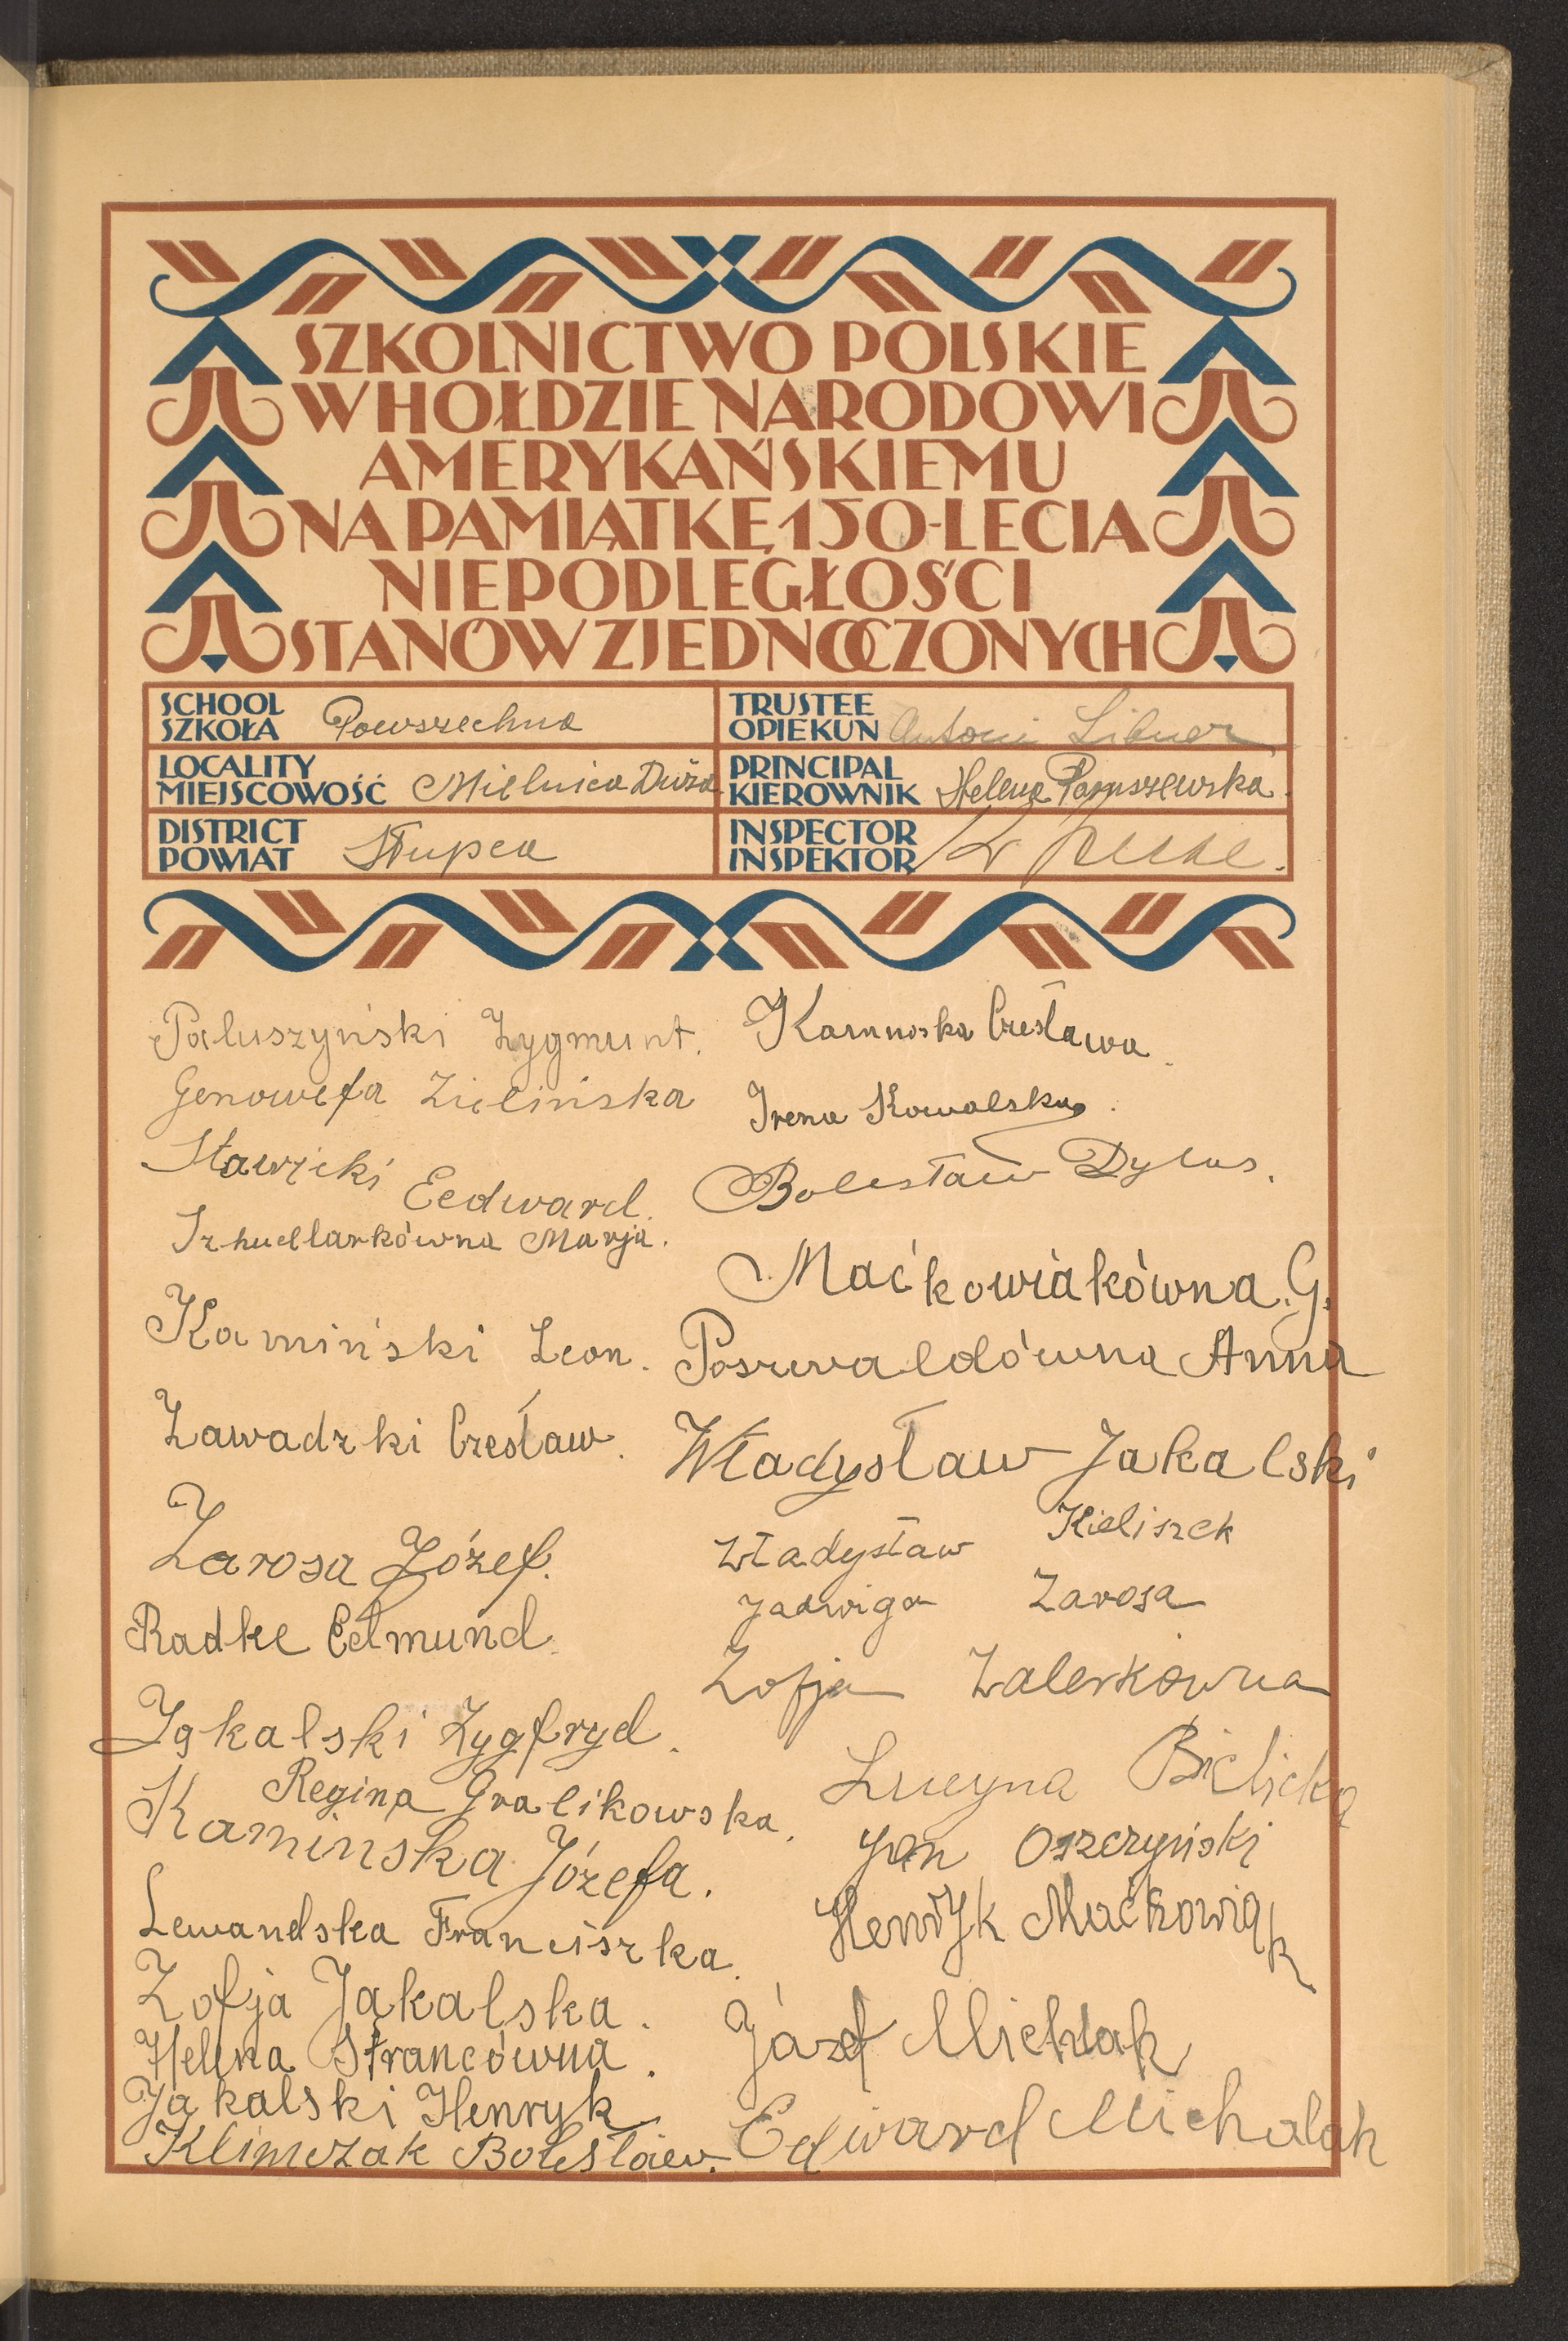 SZKOLNICTWO POLSKIE
W HOŁDZIE NARODOWI
AMERYKAŃSKIEMU
NA PAMIĄTKĘ 150-LECIA
NIEPODLEGŁOŚCI
STANÓW ZJEDNOCZONYCH
SCHOOL
SZKOŁA Powszechna
TRUSTEE
OPIEKUN Antoni
LOCALITY
MIEJSCOWOŚĆ Mielnica Duża
PRINCIPAL
KIEROWNIK Helena
DISTRICT
POWIAT Słupca
INSPECTOR
INSPEKTOR
Paluszyński Zygmunt.
Genowefa Zielińska
Stawicki Eedward.
Marja.
Kamiński Leon.
Zawadzki Czesław.
Zarosa Józef.
Radke Edmund.
Jąkalski Zygfryd.
Regina Gralikowska.
Kaminska Józefa.
Lewandska Franciszka.
Zofja Jąkalska.
Helena Strancówna.
Jąkalski Henryk
Klimczak Bolesław.
Czesława
Irena Kowalska.
Bolesław Dylus.
Maćkowiakówna.G.
Poszwaldówna Anna
Władysław Jakalski
Władysław Kieliszek
Jadwiga Zarosa
Zofja
Lucyna Bielicka
Jan Oszczyński
Henryk Maćkowiak
Józef Michlak
Edward Michalak